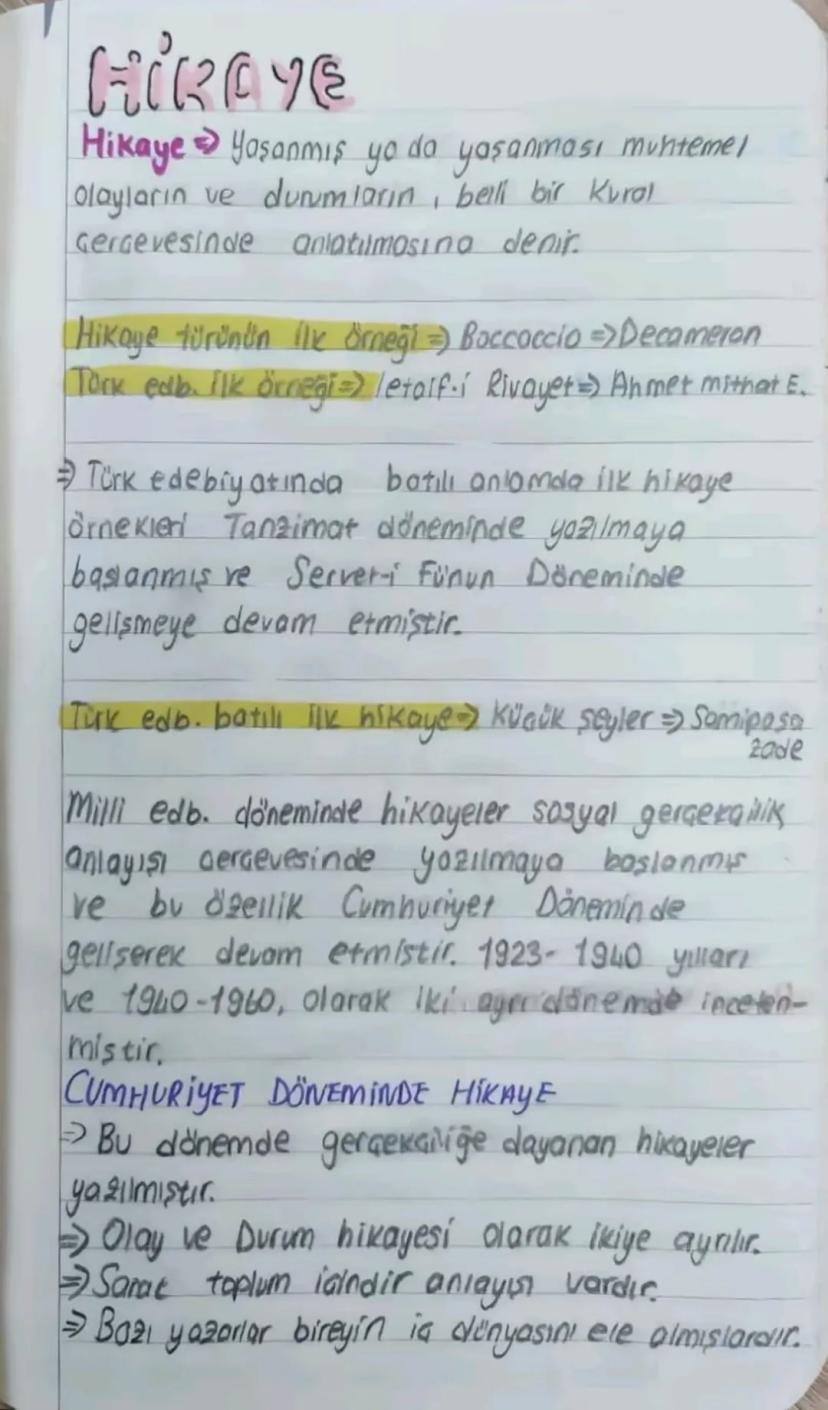 HİKAYE
Hikaye ⇒ Yaşanmış ya da yaşanması muhtemel
olayların ve durumların, belli bir kural
çerçevesinde anlatılmasına denir.
Hikaye türünün ilk örneği ⇒ Boccoccio ⇒ Decameron
Türk edb. ilk örneği ⇒ letaif-i Rivayet ⇒ Ahmet mithat E.
⇒ Türk edebiyatında batılı anlamda ilk hikaye
örnekleri Tanzimat döneminde yazılmaya
başlanmış ve Server-i Fünun Döneminde
gelişmeye devam etmiştir.
Türk edb. batılı ilk hikaye ⇒ Küçük şeyler ⇒ Samipaşa
zade
Milli edb. döneminde hikayeler sosyal gerçekçilik
anlayışı çerçevesinde yazılmaya başlanmış
ve bu özellik Cumhuriyet Döneminde
gelişerek devam etmiştir. 1923-1940 yılları
ve 1940-1960, olarak iki ayrı dönemde incelen-
miştir.
CUMHURİYET DÖNEMİNDE HİKAYE
⇒ Bu dönemde gerçekçiliğe dayanan hikayeler
yazılmıştır.
⇒ Olay ve Durum hikayesi olarak ikiye ayrılır.
⇒ Sanat toplum içindir anlayışı vardır.
⇒ Bazı yazarlar bireyin iç dünyasını ele almışlardır.